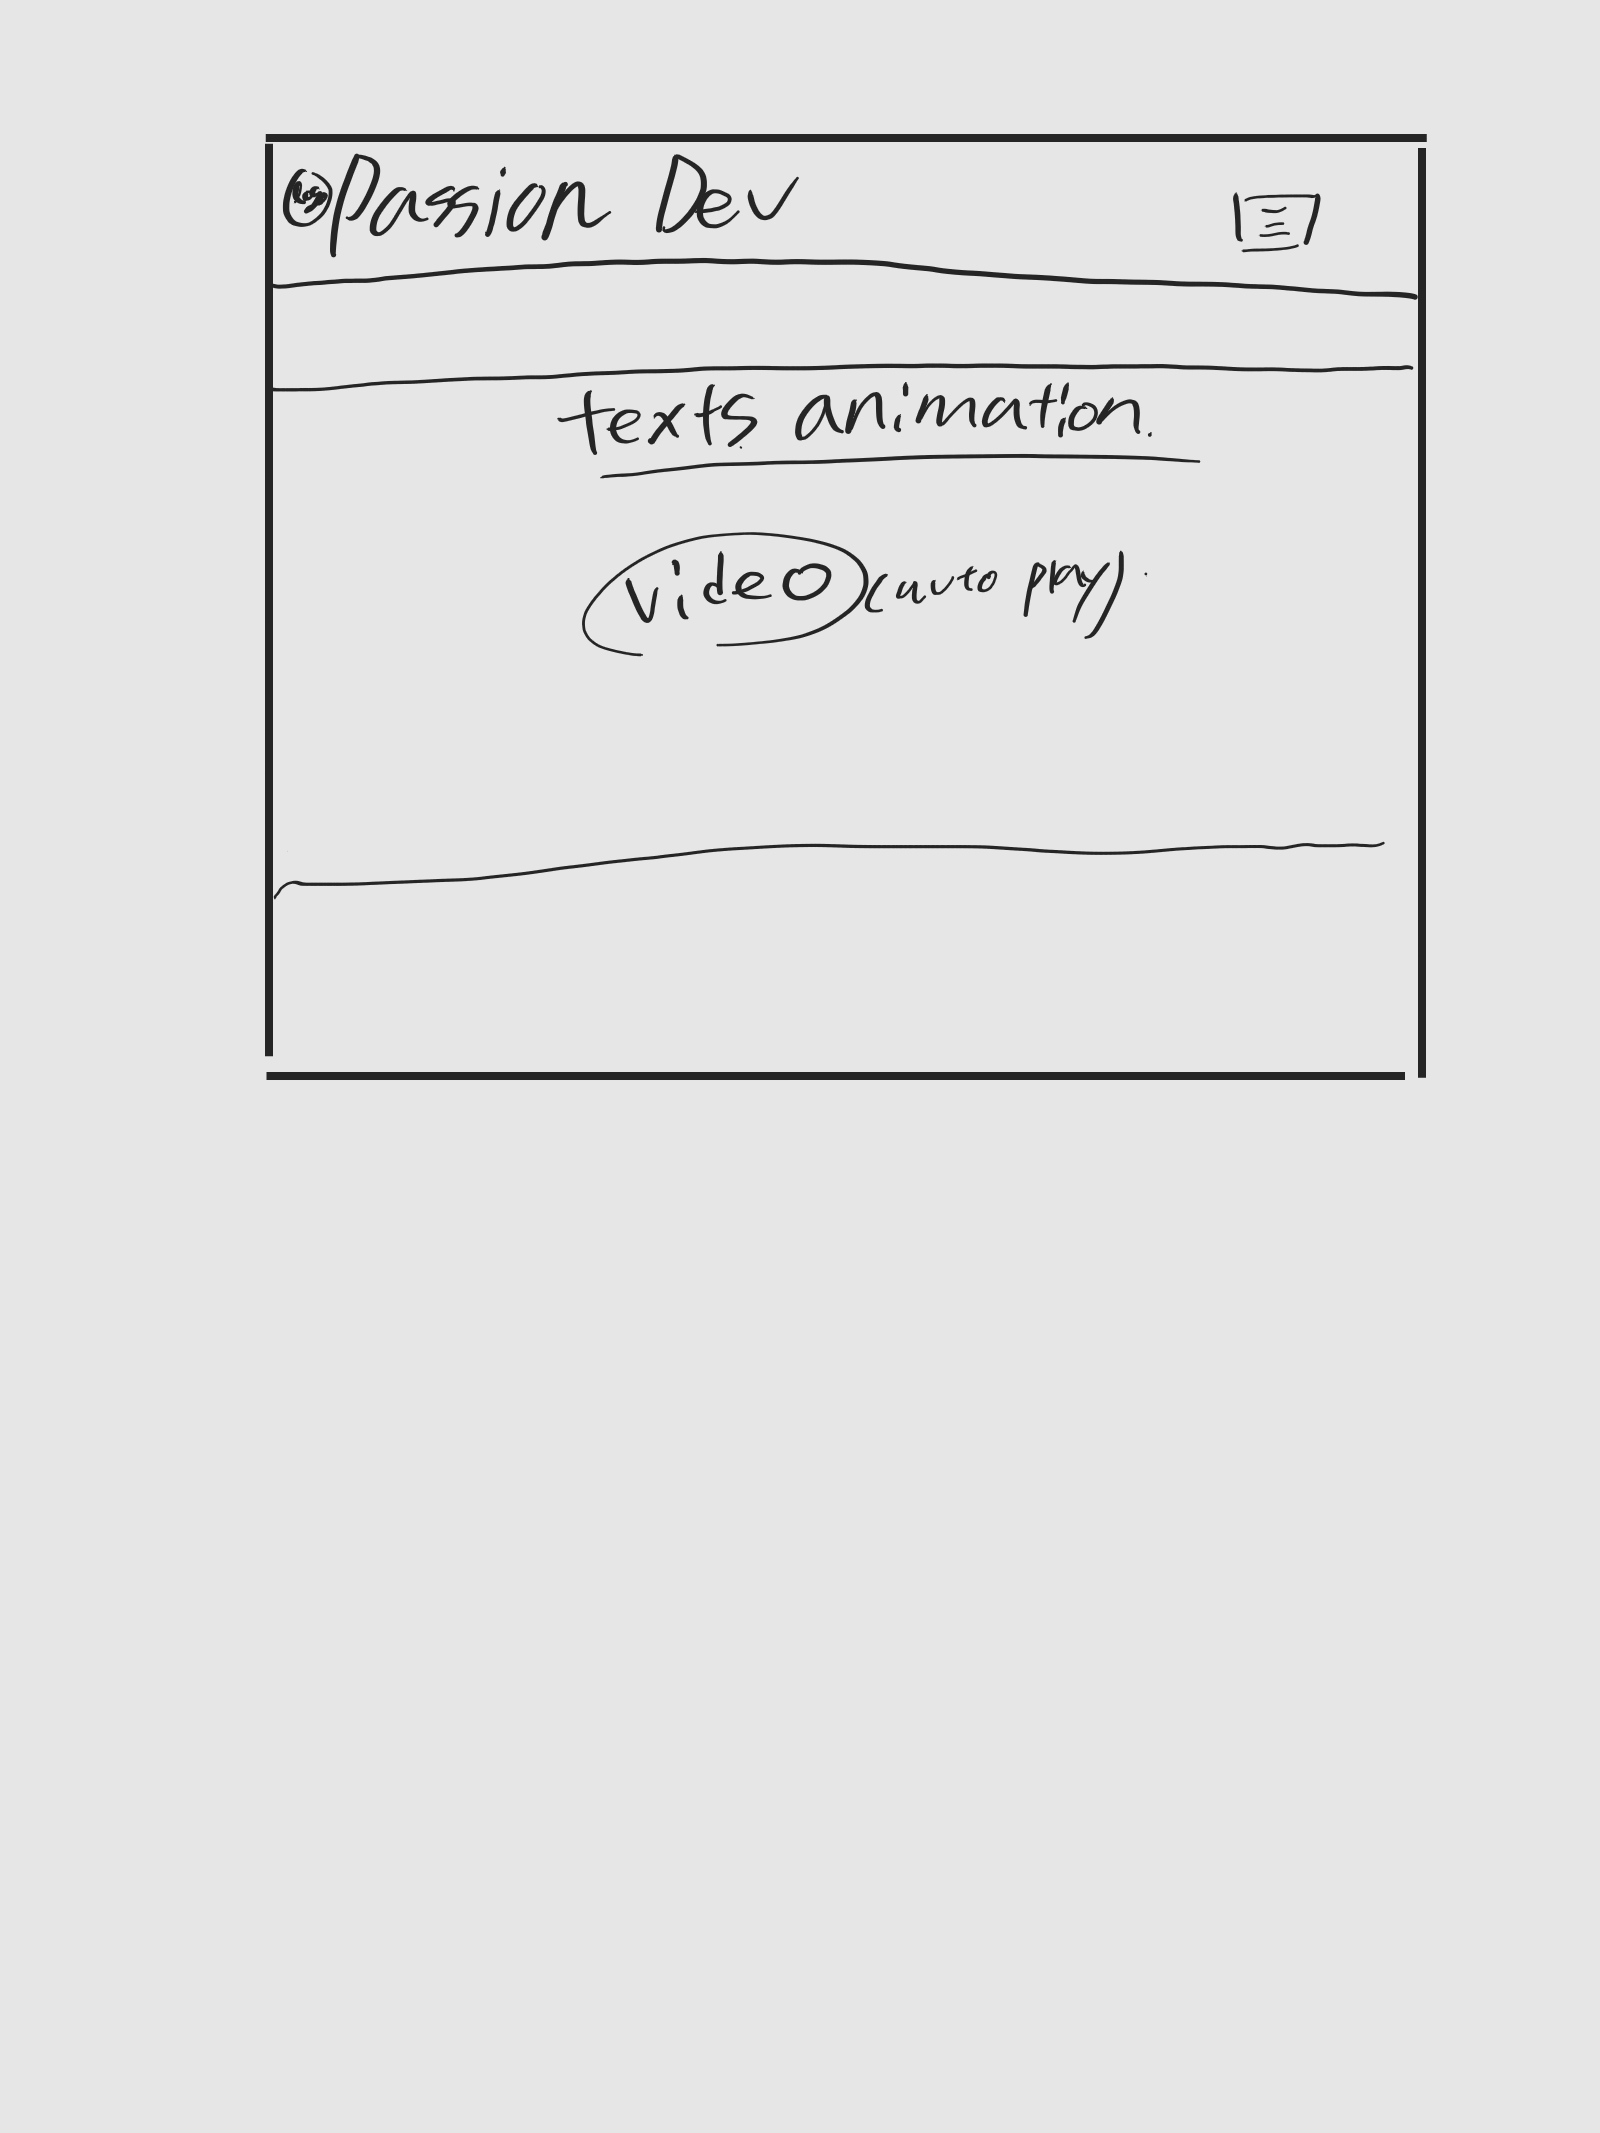 Logo Passion Dev
texts animation.
video (auto play)